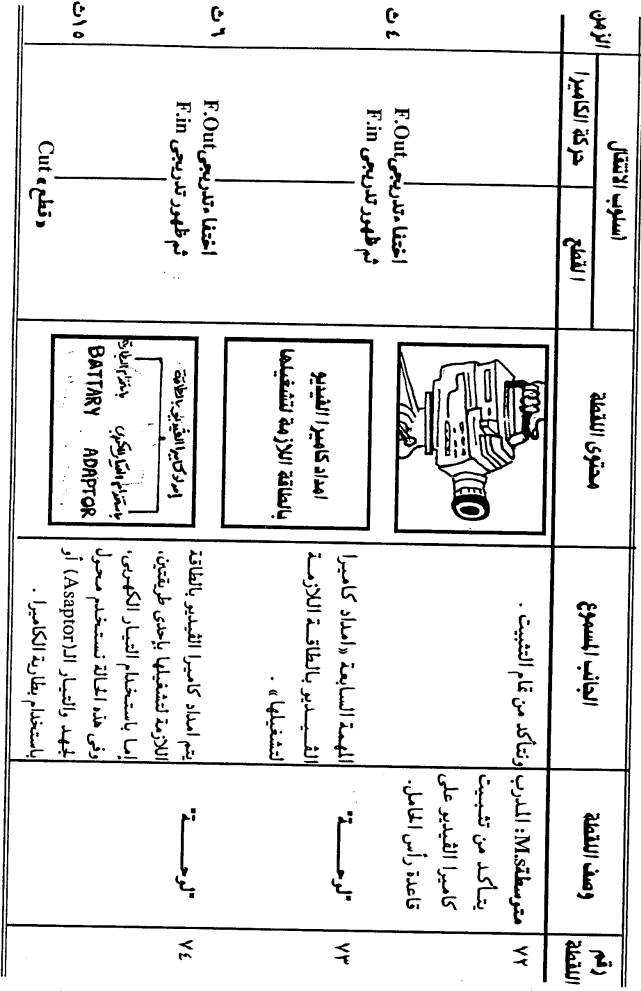 رقم
اللقطة
وصف اللقطة
الجانب المسموع
محتوى اللقطة
اسلوب الانتقال
القطع
حركة الكاميرا
الزمن
٧٢
متوسطة M.s: المدرب
يتأكد من تثبيت
كاميرا الڤيديو على
قاعدة رأس الحامل.
ونتأكد من تمام التثبيت .
اختفاء تدريجى F.Out
ثم ظهور تدريجى F.in
٤ ث
٧٣
"لوحـــة"
المهمة السابعة «امداد كاميرا
الڤيـديو بالطاقـة اللازمـة
لتشغيلها» .
امداد كاميرا الڤيديو
بالطاقة اللازمة لتشغيلها
اختفاء تدريجى F.Out
ثم ظهور تدريجى F.in
٦ ث
٧٤
"لوحـــة"
يتم امداد كاميرا الڤيديو بالطاقة
اللازمة لتشغيلها بإحدى طريقتين،
إما باستخدام التيار الكهربى،
وفى هذه الحالة نستخدم محول
لجهد والتيار الـ(Asaptor) أو
باستخدام بطارية الكاميرا .
إمداد كاميرا الڤيديو بالطاقة
باستخدام التيار الكهربى
باستخدام البطارية
ADAPTOR
BATTARY
«قطع» Cut
١٥ ث